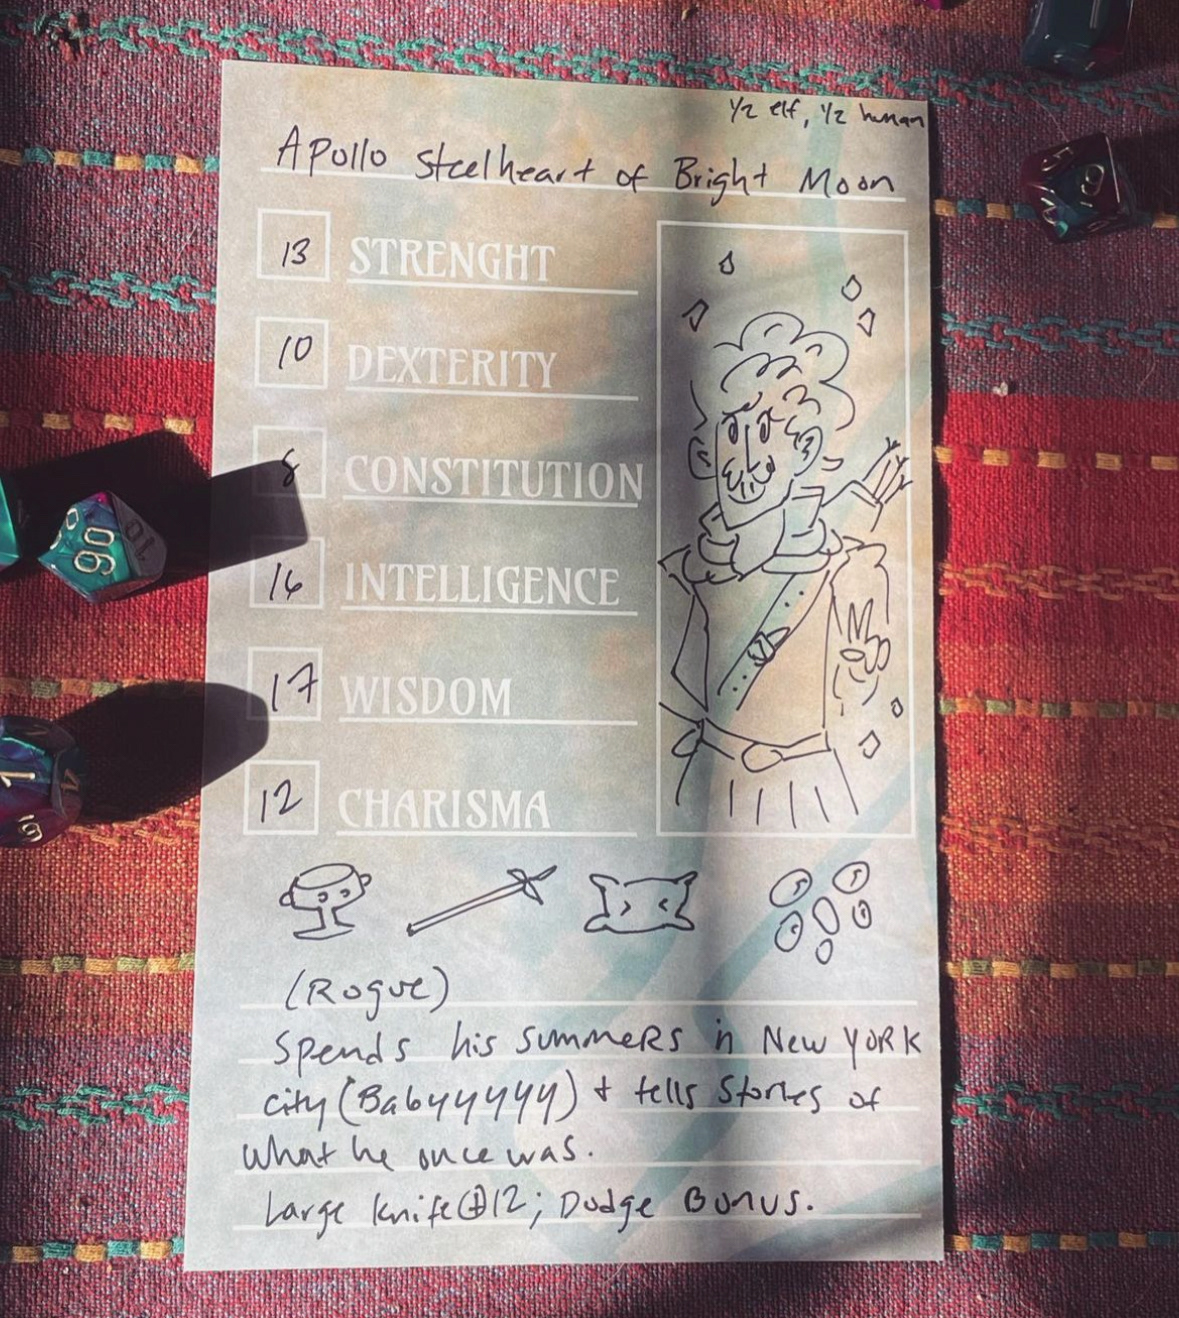 1/2 elf, 1/2 human
Apollo Steelheart of Bright Moon
13 STRENGHT
10 DEXTERITY
8 CONSTITUTION
16 INTELLIGENCE
17 WISDOM
12 CHARISMA
(Rogue)
Spends his summers in New York
city (Babyyyyy) + tells stories of
what he once was.
Large knife +12; Dodge Bonus.
90
10